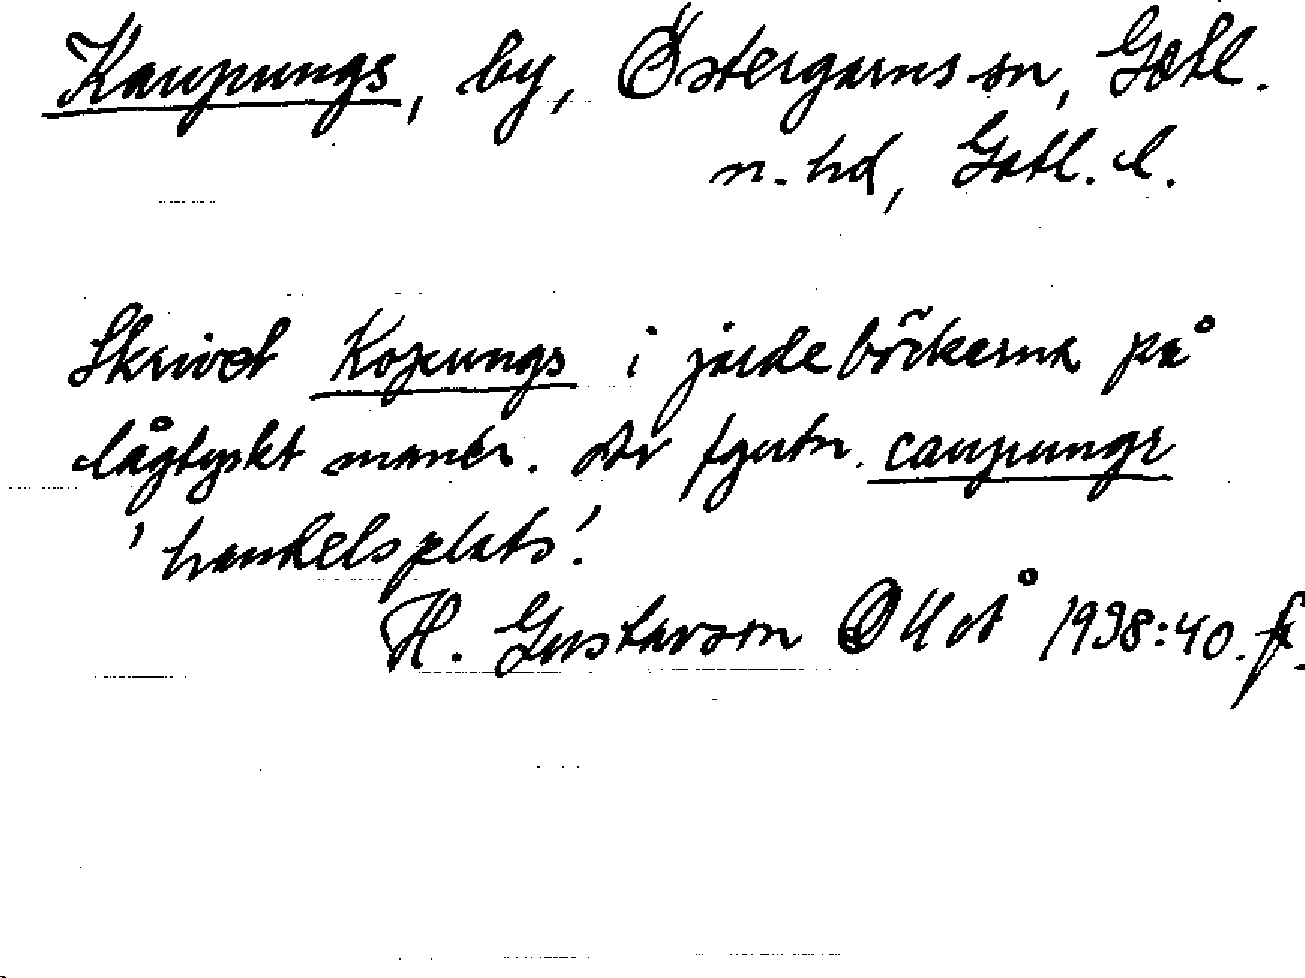 Kaupungs, by, Östergarns sn, Gotl.
n. hd, Gotl. l.
Skrivet Kopungs i jordeböckerna på
lågtyskt manér. Av fgutn. caupungr
'handelsplats'.
H. Gustavson 1938:40. f.